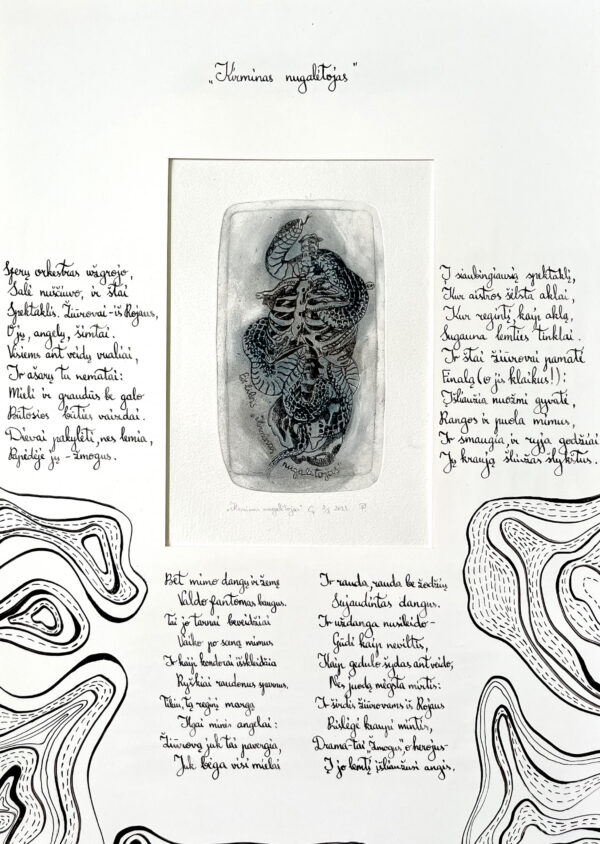 „Kirminas nugalėtojas"
Sferų orkestras užgrojo,
Salė nuščiuvo, ir štai
Spektaklis. Žiūrovai - iš Rojaus,
O jų, angelų, šimtai.
Visiems ant veidų vualiai,
Ir ašarų tu nematai:
Mieli ir graudūs be galo
Būtosios būties vaizdai.
Dievai pakylėti, nes lemia,
Pėdėje jų - žmogus.
Į siaubingiausią spektaklį,
Kur aistros šėlsta aklai,
Kur regintį, kaip aklą,
Sugauna lemties tinklai.
Ir štai žiūrovai pamatė
Finalą (o jis klaikus!):
Išliaužia nuožmi gyvatė,
Rangos ir puola mimus,
Ir smaugia, ir ryja godžiai
Jų kraują šliužas šlykštus.
„Kirminas
nugalėtojas"
„Kirminas nugalėtojas" 2021
Bet mimo dangų ir žemę
Valdo fantomas baugus.
Tai jo tarnai beveidžiai
Vaiko po sceną mimus
Ir kaip kondorai išskleidžia
Ryškiai raudonus sparnus.
Tikiu, tą reginį margą
Ilgai minės angelai:
Žiūrovą juk tai pavergia,
Juk bėga visi mielai
Ir rauda, rauda be žodžių
Sujaudintas dangus.
Ir uždanga nusileido -
Gūdi kaip neviltis,
Kaip gedulo šydas ant veido,
Nes juodą mėgsta mirtis:
Ir širdis žiūrovams iš Rojaus
Prislėgė kraupi mintis,
Drama - tai „Žmogus", o herojus -
Į jo lemtį išliaužusi angis.